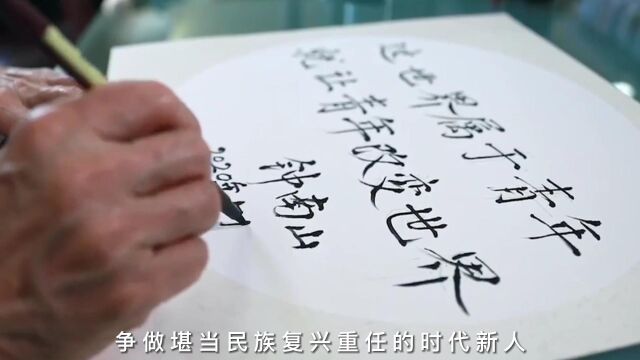 这世界属于青年
就让青年改变世界
钟南山
2020年
争做堪当民族复兴重任的时代新人